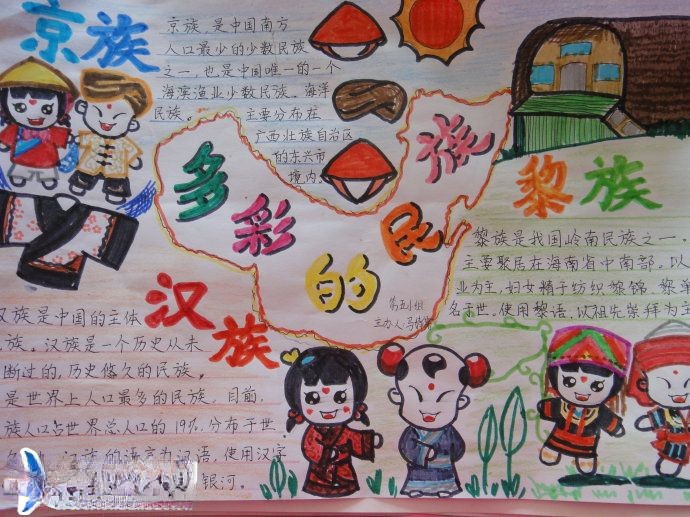 京族
京族，是中国南方
人口最少的少数民族
之一，也是中国唯一的一个
海滨渔业少数民族、海洋
民族。
主要分布在
广西壮族自治区
的东兴市
境内。
多彩的民族
第五小组
主办人:马
黎族
黎族是我国岭南民族之一。
主要聚居在海南省中南部。以
业为主，妇女精于纺织，黎锦、黎单
名于世，使用黎语，以祖先崇拜为主
汉族
汉族是中国的主体
族。汉族是一个历史从未
断过的，历史悠久的民族。
是世界上人口最多的民族。目前，
族人口占世界总人口的19%，分布于世
汉族的语言为汉语，使用汉字
银河。